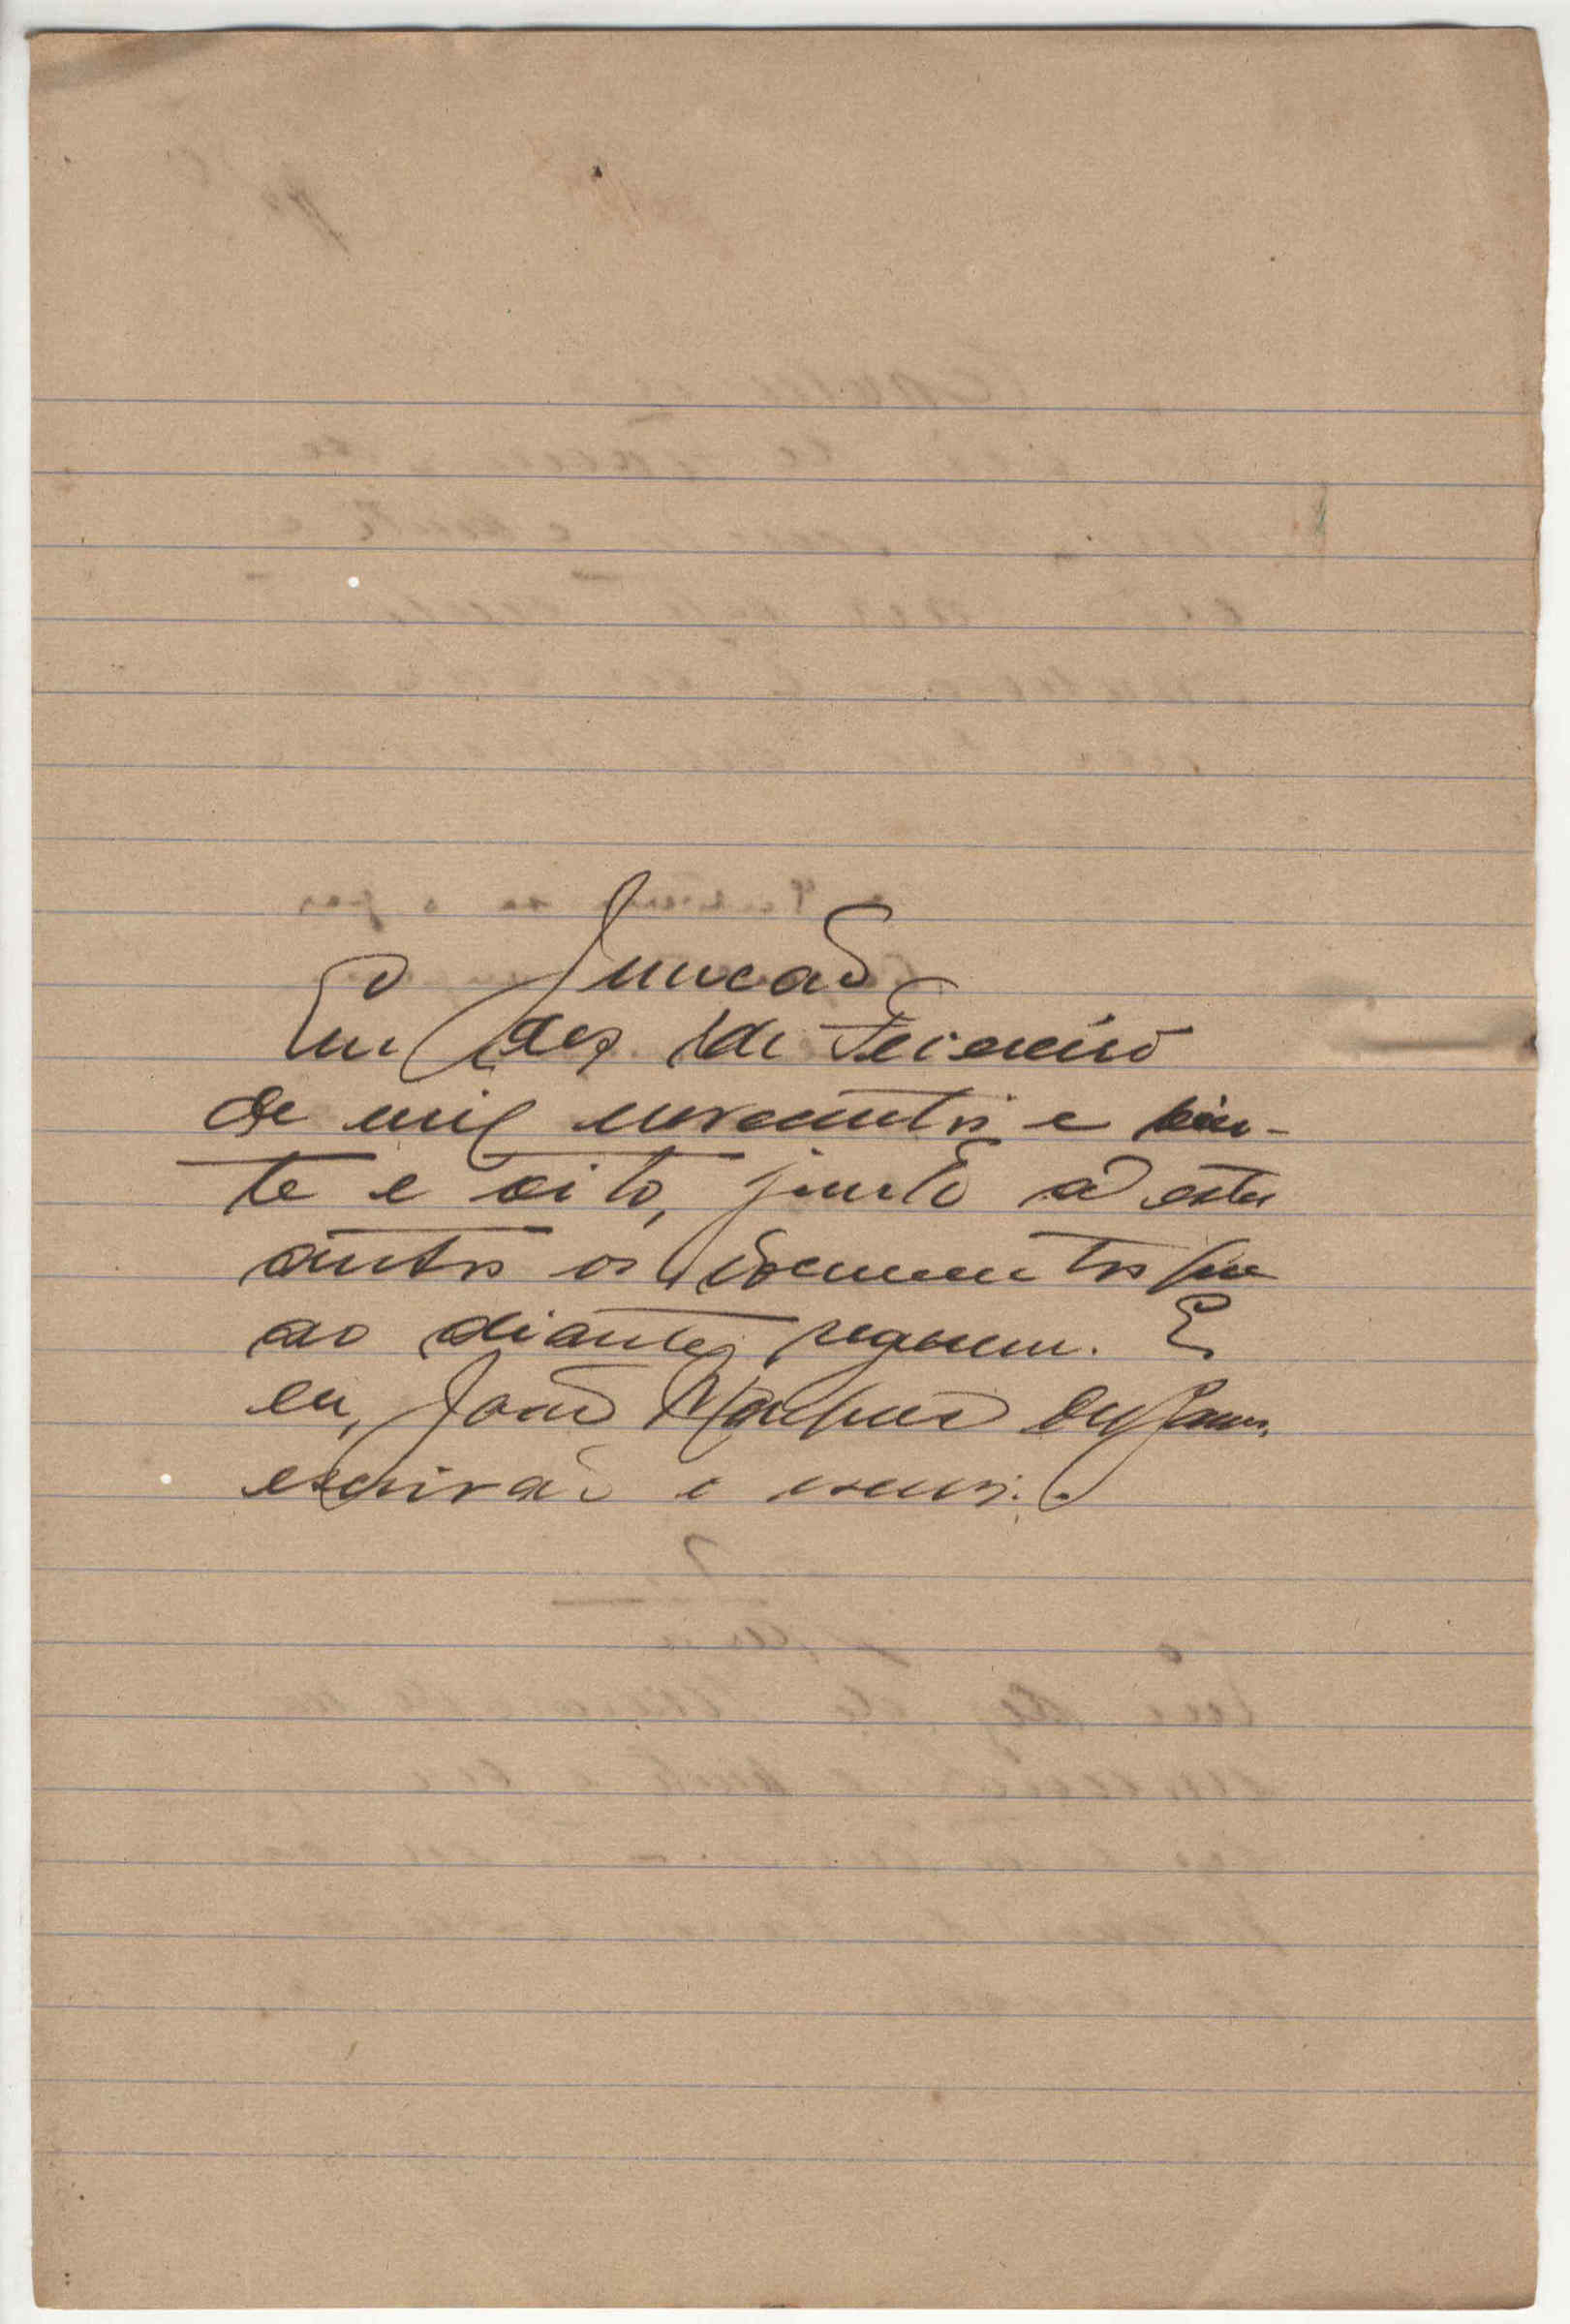 Juncção
Em dez de Fevereiro
de mil novecentos e vin-
te e oito, junto a estes
autos os documentos que
ao diante seguem. E
eu, João
escrivão o escrevi.